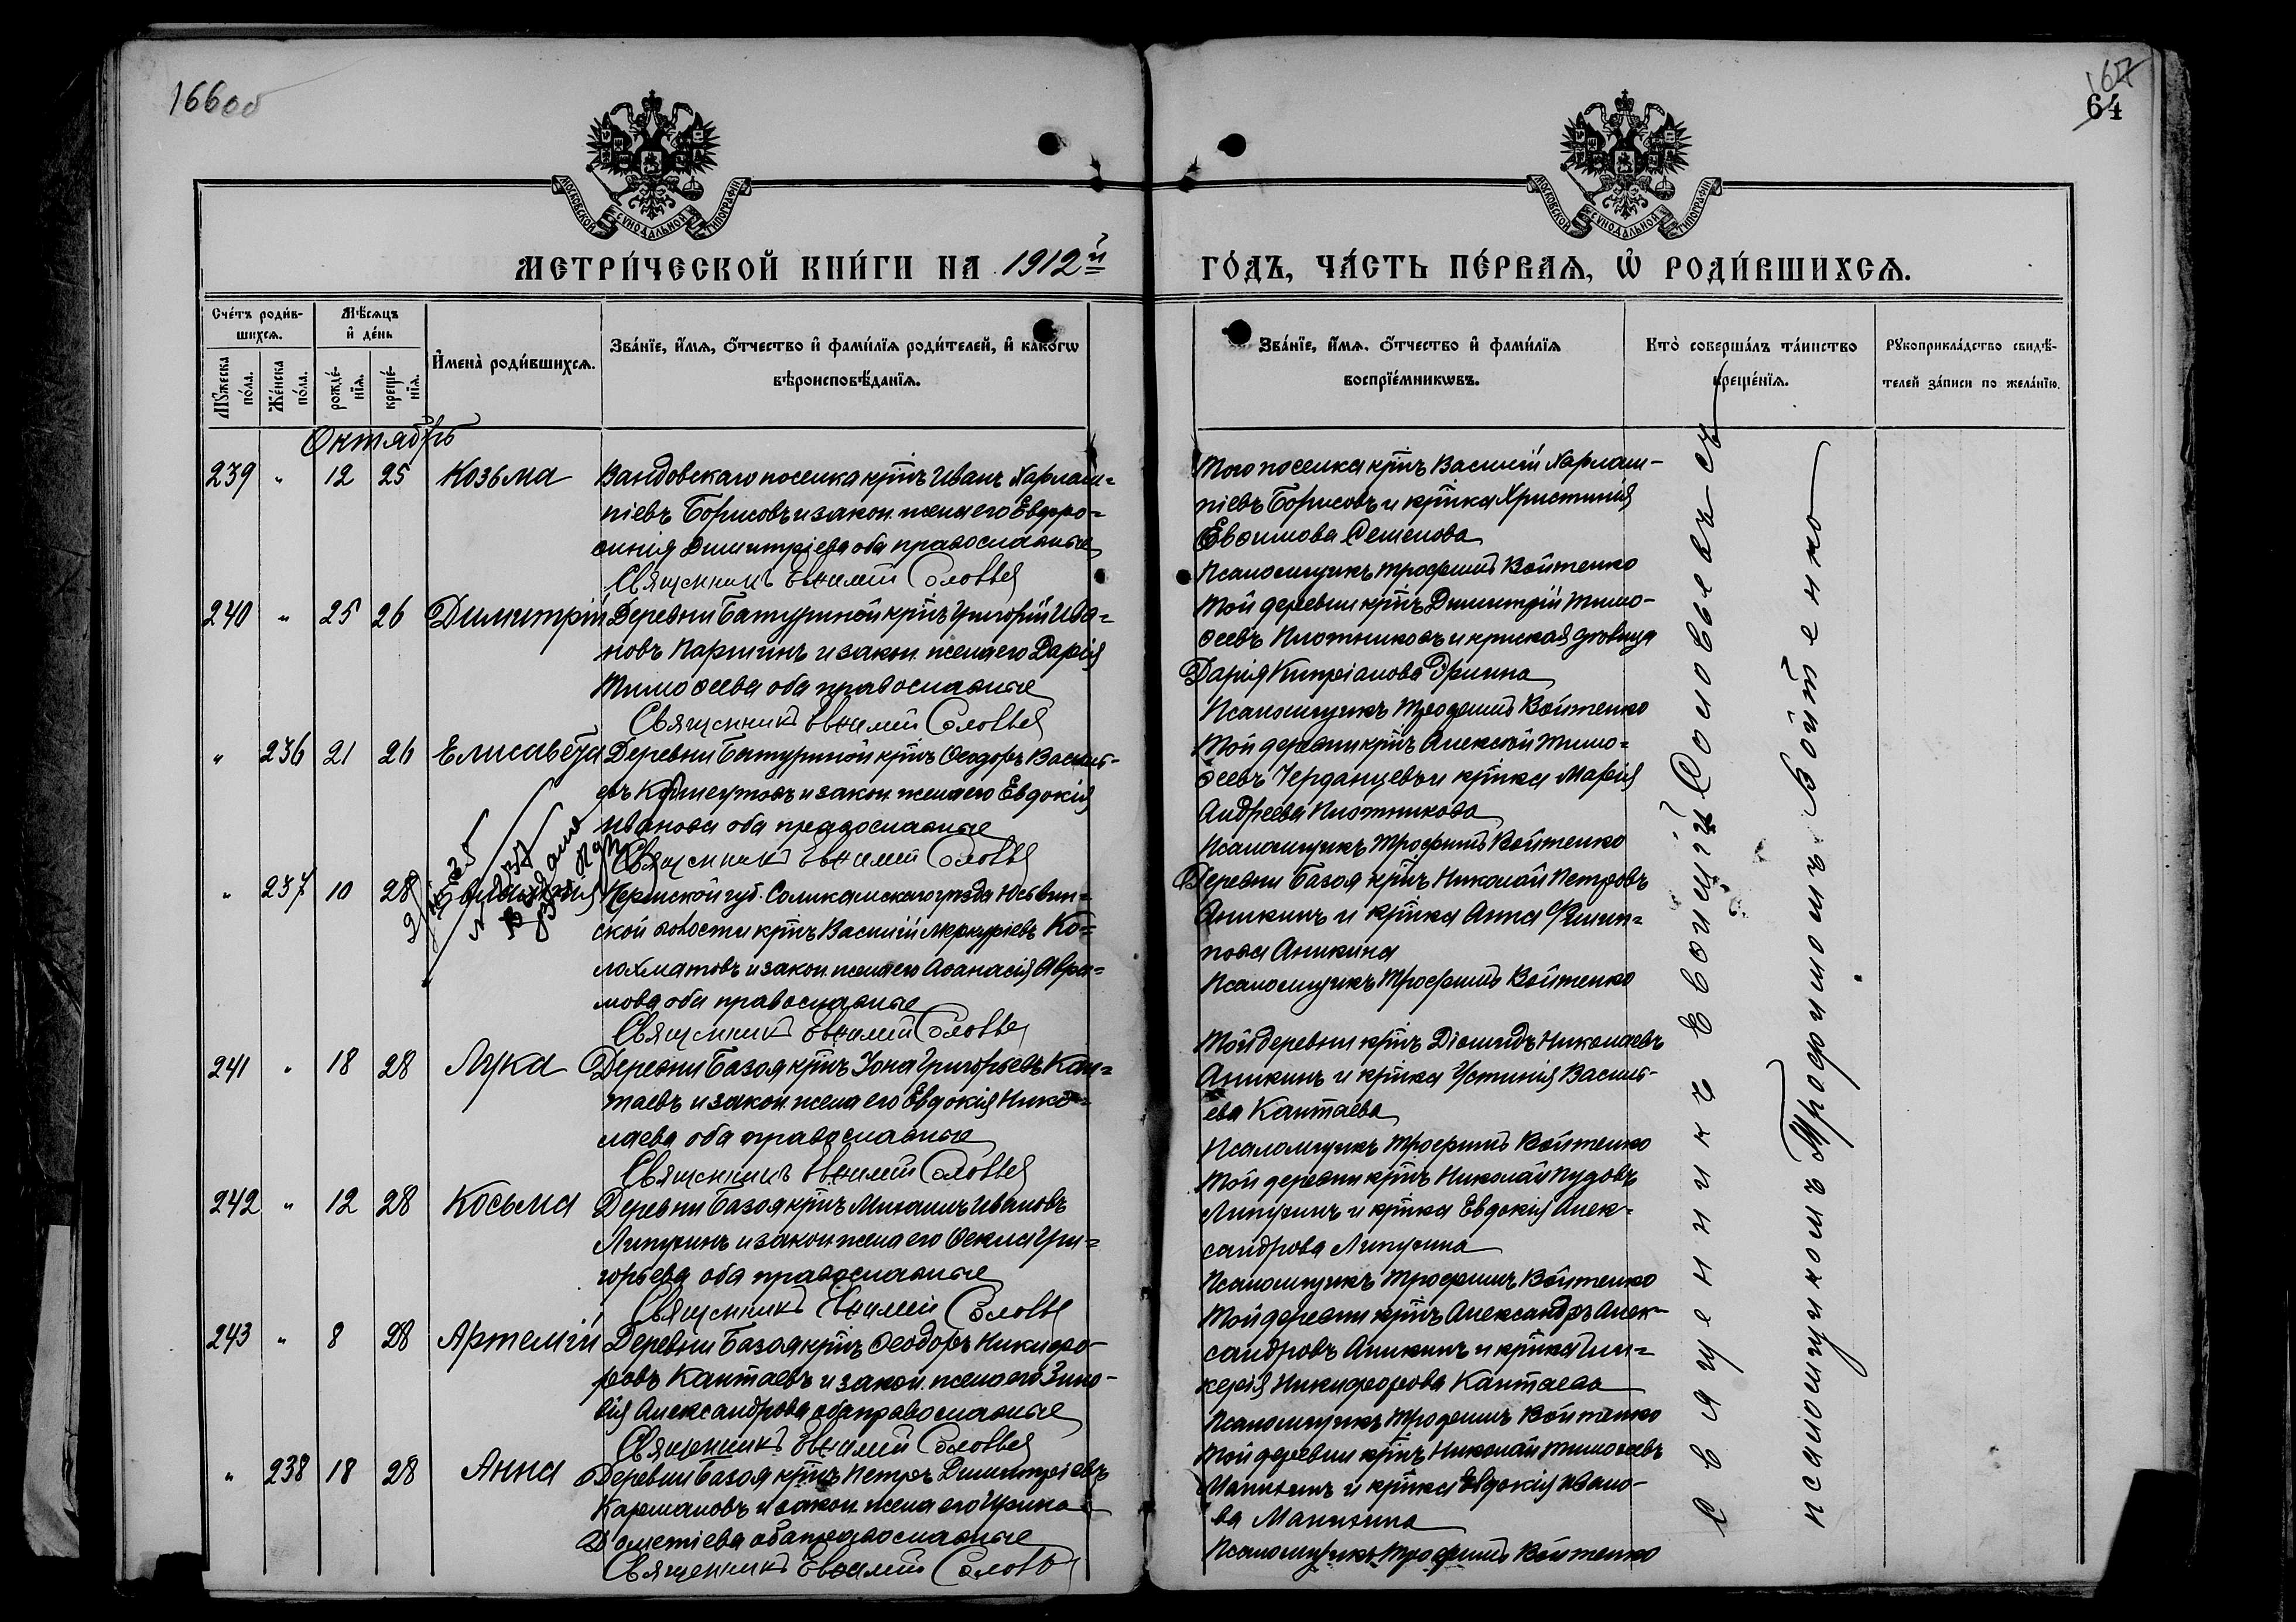 166об
167
64
МОСКОВСКОЙ СѴНОДАЛЬНОЙ ТИПОГРАФІИ
МОСКОВСКОЙ СѴНОДАЛЬНОЙ ТИПОГРАФІИ
МЕТРИ́ЧЕСКОЙ КНИ́ГИ НА 1912й
ГО́ДЪ, ЧА́СТЬ ПЕ́РВАѦ, Ѽ РОДИ́ВШИХСѦ.
Сче́тъ роди́в-
шихсѧ.
Мꙋ́жеска по́ла.
Же́нска по́ла.
Мѣ́сѧцъ и҆ де́нь
рожде́-нїѧ.
креще́-нїѧ.
И҆мена̀ роди́вшихсѧ.
Зва́нїе, и҆́мѧ, ѻ҆́тчество и҆ фами́лїѧ роди́телей, и҆ како́гѡ
вѣроисповѣ́данїѧ.
Зва́нїе, и҆́мѧ, ѻ҆́тчество и҆ фами́лїѧ
воспрїе́мникѡвъ.
Кто̀ соверша́лъ та́инство
креще́нїѧ.
Рꙋкоприкла́дство свидѣ́-
телей за́писи по жела́нїю.
Октябрь
239 " 12 25 Козьма Вандовскаго поселка крнъ Иванъ Харлам=
піевъ Борисовъ и закон. жена его Евфро=
синія Димитріева оба православные
Священникъ Евѳимій Соловье
Того поселка крнъ Василій Харлам-
піевъ Борисовъ и крнка Христинія
Евѳимова Семенова
Псаломщикъ Трофимъ Войтенко
240 " 25 26 Димитрій Деревни Батуриной крнъ Григорій Ива=
новъ Паршинъ и закон. жена его Дарія
Тимоѳеева оба православные
Священникъ Евѳимій Соловье
Той деревни крнъ Димитрій Тимо-
ѳеевъ Плотниковъ и крнская дѣвица
Дарія Кипріанова
Псаломщикъ Трофимъ Войтенко
" 236 21 26 Елисавета Деревни Батуриной крнъ Ѳеодоръ Василь-
евъ и закон. жена его Евдокія
Иванова оба православные
Священникъ Евѳимій Соловье
Той деревни крнъ Алексѣй Тимо=
ѳеевъ Черданцевъ и крнка Марія
Андреева Плотникова
Псаломщикъ Трофимъ Войтенко
" 237 10 28 Пермской губ. Соликамскаго уѣзда Юсьвин=
ской волости крнъ Василій Меркуріевъ Ко=
лохматовъ и закон. жена его Аѳанасія Авра=
мова оба православные
Священникъ Евѳимій Соловье
Деревни Базоя крнъ Николай Петровъ
Аникинъ и крнка Анна Филип=
пова Аникина
Псаломщикъ Трофимъ Войтенко
241 " 18 28 Лука Деревни Базоя крнъ Іона Григорьевъ Кан=
таевъ и закон. жена его Евдокія Нико=
лаева оба православные
Священникъ Евѳимій Соловье
Той деревни крнъ Діомидъ Николаевъ
Аникинъ и крнка Устинія Василь-
ева Кантаева
Псаломщикъ Трофимъ Войтенко
242 " 12 28 Косьма Деревни Базоя крнъ Михаилъ Ивановъ
Липухинъ и закон жена его Ѳекла Гри=
горьева оба православные
Священникъ Евѳимій Соловье
Той деревни крнъ Николай Пудовъ
Липухинъ и крнка Евдокія Алек=
сандрова Липухина
Псаломщикъ Трофимъ Войтенко
243 " 8 28 Артемій Деревни Базоя крнъ Ѳеодоръ Никифо-
ровъ Кантаевъ и закон. жена его Зино-
вія Александрова оба православные
Священникъ Евѳимій Соловье
Той деревни крнъ Александръ Алек-
сандровъ Аникинъ и крнка Гли=
керія Никифорова Кантаева
Псаломщикъ Трофимъ Войтенко
" 238 18 28 Анна Деревни Базоя крнъ Петръ Димитріевъ
Кармановъ и закон. жена его Ирина
Дометіева оба православные
Священникъ Евѳимій Соловье
Той деревни крнъ Николай Тимоѳеевъ
и крнка Евдокія Ивано-
ва
Псаломщикъ Трофимъ Войтенко
Священникъ Евѳимій Соловьевъ съ
псаломщикомъ Трофимомъ Войтенко